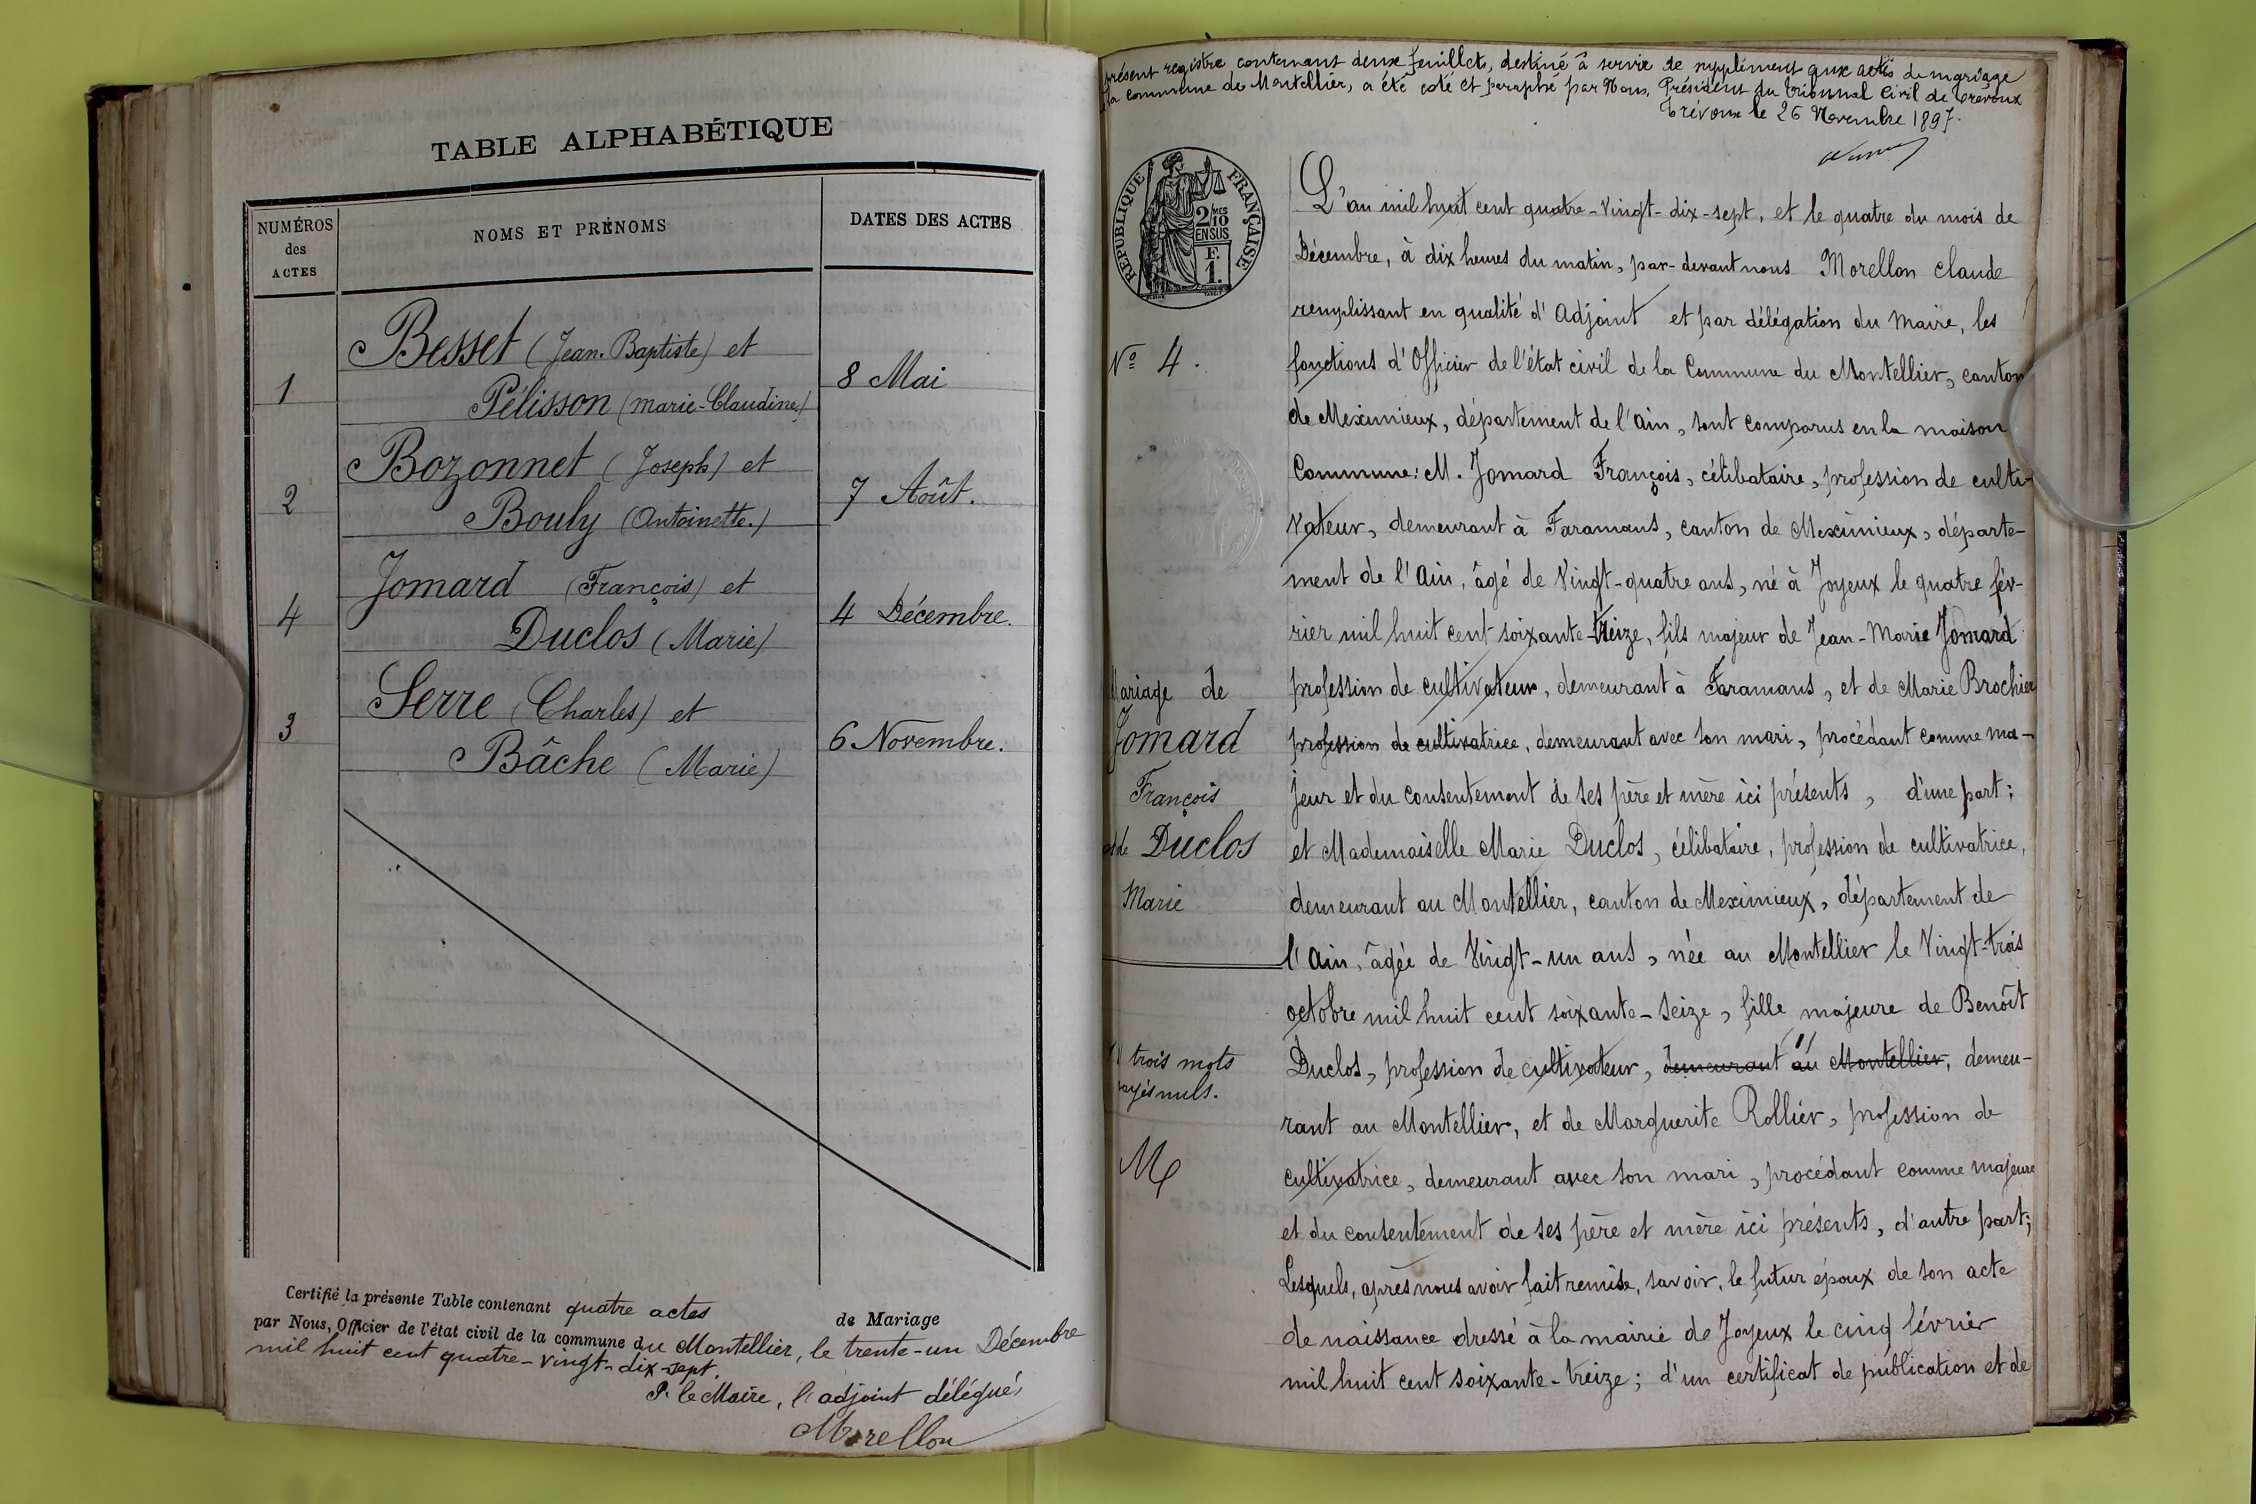 TABLE ALPHABÉTIQUE
NUMÉROS
des
ACTES
NOMS ET PRÉNOMS
DATES DES ACTES
Besset (Jean-Baptiste) et
1
Pélisson (Marie-Claudine)
8 Mai
Bozonnet (Joseph) et
2
Bouly (Antoinette.)
7 Août.
Jomard (François) et
4
Duclos (Marie)
4 Décembre.
Serre (Charles) et
3
Bâche (Marie)
6 Novembre.
Certifié la présente Table contenant quatre actes de Mariage
par Nous, Officier de l'état civil de la commune du Montellier, le trente-un Décembre
mil huit cent quatre-vingt-dix-sept.
P. le Maire, l'adjoint délégué,
Morellon
présent registre contenant deux feuillets, destiné à servir de supplément aux actes de mariage
la commune de Montellier, a été coté et paraphé par Nous, Président du tribunal Civil de Trévoux
Trévoux le 26 Novembre 1897.
RÉPUBLIQUE FRANÇAISE
2/10 MES
EN SUS
F.
1.
L'an mil huit cent quatre-vingt-dix-sept, et le quatre du mois de
Décembre, à dix heures du matin, par-devant nous Morellon Claude
remplissant en qualité d'Adjoint et par délégation du Maire, les
Nº 4.
fonctions d'Officier de l'état civil de la Commune du Montellier, canton
de Meximieux, département de l'Ain, sont comparus en la maison
Commune: M. Jomard François, célibataire, profession de culti-
vateur, demeurant à Faramans, canton de Meximieux, départe-
ment de l'Ain, âgé de vingt-quatre ans, né à Joyeux le quatre fév-
rier mil huit cent soixante-treize, fils majeur de Jean-Marie Jomard
profession de cultivateur, demeurant à Faramans, et de Marie Brochier
profession de cultivatrice, demeurant avec son mari, procédant comme ma-
jeur et du consentement de ses père et mère ici présents, d'une part;
et Mademoiselle Marie Duclos, célibataire, profession de cultivatrice,
demeurant au Montellier, canton de Meximieux, département de
l'Ain, âgée de vingt-un ans, née au Montellier le vingt-trois
octobre mil huit cent soixante-seize, fille majeure de Benoît
Duclos, profession de cultivateur, demeurant au Montellier, demeu-
rant au Montellier, et de Marguerite Rollier, profession de
cultivatrice, demeurant avec son mari, procédant comme majeure
et du consentement de ses père et mère ici présents, d'autre part;
Lesquels, après nous avoir fait remise, savoir, le futur époux de son acte
de naissance dressé à la mairie de Joyeux le cinq février
mil huit cent soixante-treize; d'un certificat de publication et de
Mariage de
Jomard
François
et de Duclos
Marie
trois mots
rayés nuls.
M